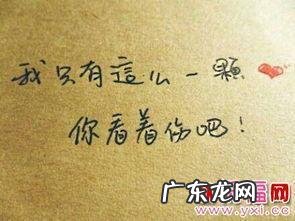 我只有這么一顆
你看着伤吧！
广东龙网
www.yxi.cc